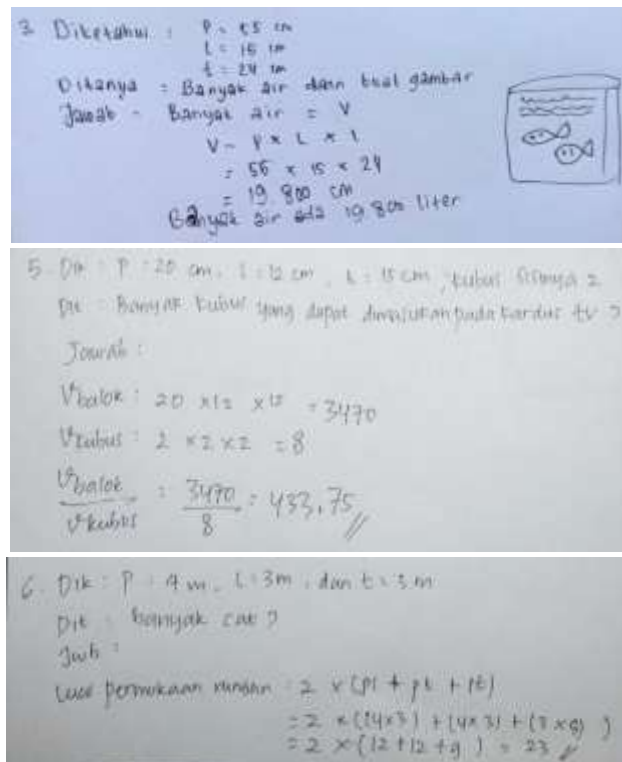 3 Diketahui : P = 55 cm
L = 15 cm
t = 24 cm
Ditanya = Banyak air dalam gambar
Jawab = Banyak air = V
V = P x L x t
= 55 x 15 x 24
= 19.800 cm
Banyak air ada 19.800 liter
5. Dik : P = 20 cm, l = 12 cm, t = 15 cm, kubus sisinya 2
Dit : Banyak kubus yang dapat dimasukan pada kardus tv ?
Jawab :
V balok : 20 x 12 x 15 = 3470
V kubus : 2 x 2 x 2 = 8
V balok / V kubus : 3470 / 8 = 433,75
6. Dik : P = 4 m, L = 3m, dan t = 3 m
Dit : banyak cat ?
Jwb :
Luas permukaan : 2 x (pl + pt + lt)
= 2 x ((4x3) + (4x3) + (3x3))
= 2 x (12 + 12 + 9) = 23